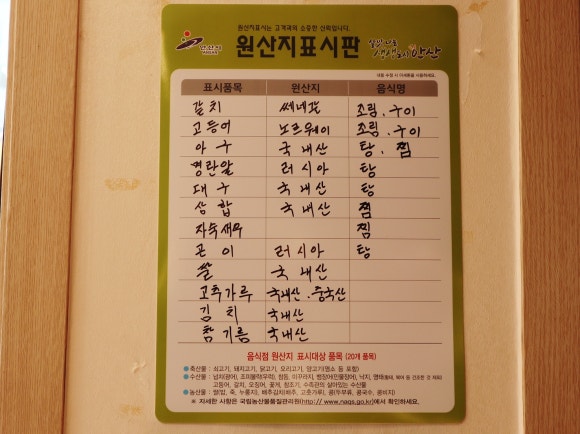 원산지표시는 고객과의 소중한 신뢰입니다.
안산시
원산지표시판
생생도시 안산
표시품목 원산지 음식명
갈치 쎄네갈 조림, 구이
고등어 노르웨이 조림, 구이
아구 국내산 탕, 찜
명란알 러시아 탕
대구 국내산 탕
삼합 국내산 찜
자숙새우 찜
곤이 러시아 탕
쌀 국내산
고추가루 국내산.중국산
김치 국내산
참기름 국내산
음식점 원산지 표시대상 품목 (20개 품목)
●축산물 : 쇠고기, 돼지고기, 닭고기, 오리고기, 양고기(염소 등 포함)
●수산물 : 넙치(광어), 조피볼락(우럭), 참돔, 미꾸라지, 뱀장어(민물장어), 낙지, 명태
고등어, 갈치, 오징어, 꽃게, 참조기, 수족관의 살아있는 수산물
●농산물 : 쌀(밥, 죽, 누룽지), 배추김치(배추, 고춧가루), 콩(두부류, 콩국수, 콩비지)
※ 자세한 사항은 국립농산물품질관리원(http://www.naqs.go.kr)에서 확인하세요.